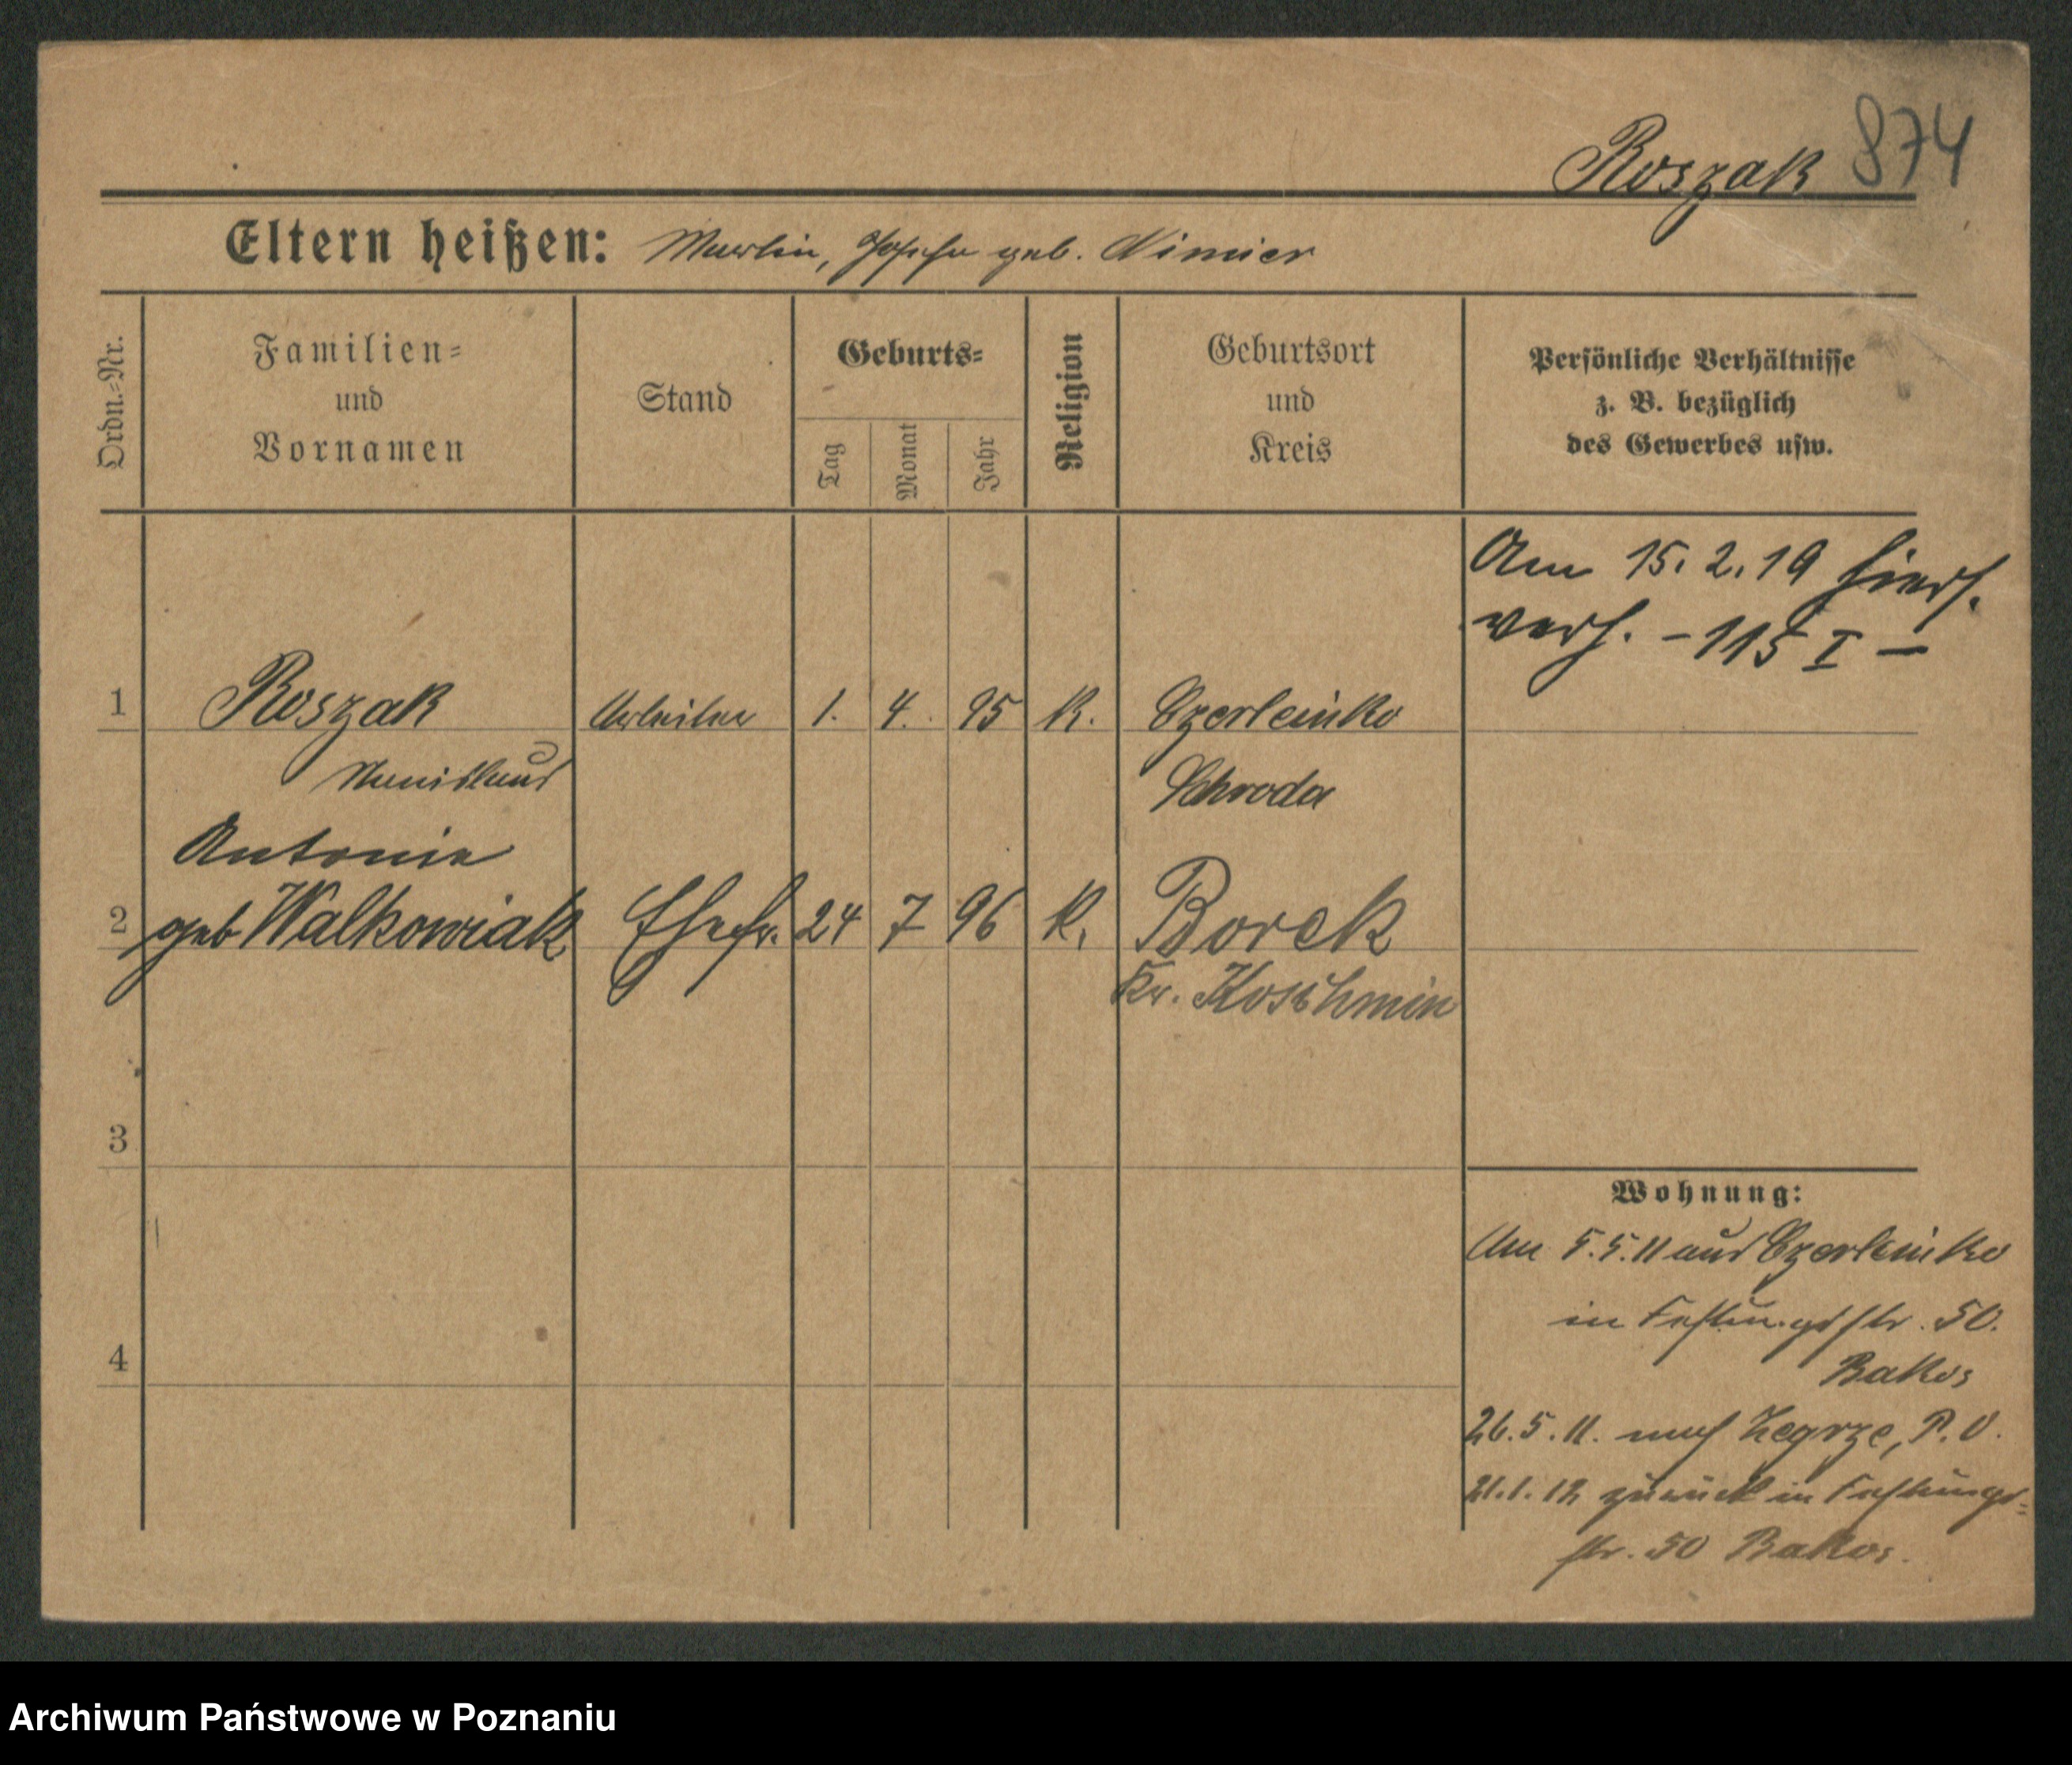 Roszak 874
Eltern heißen: Martin, Josefa geb. Nimier
Ordn.=Nr.
Familien=
und
Vornamen
Stand
Geburts=
Tag
Monat
Jahr
Religion
Geburtsort
und
Kreis
Persönliche Verhältnisse
z. B. bezüglich
des Gewerbes usw.
Am 15.2.19 hiers.
verh. – 115 I –
1 Roszak Arbeiter 1. 4. 95 K. Czerleinko
Stanislaus Schroda
Antonie
2 geb Walkowiak Ehefr. 24 7 96 K. Borek
Kr. Koschmin
3
4
Wohnung:
Am 5.5.11 aus Czerleinko
in Festungsstr. 50.
Bakos
26.5.11. nach Zegrze, P.O.
21.1.12 zurück in Festungs=
str. 50 Bakos.
Archiwum Państwowe w Poznaniu